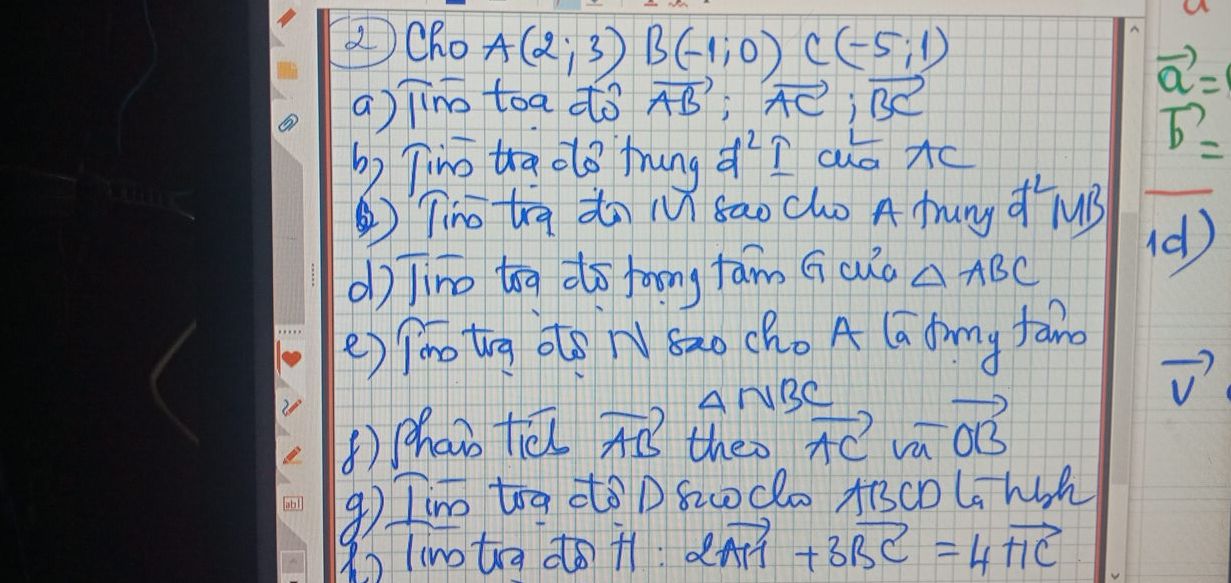 ② Cho A(2;3) B(-1;0) C(-5;1)
a) Tìm toạ độ AB; AC; BC
b) Tìm toạ độ trung đ² I của AC
c) Tìm toạ độ M sao cho A trung đ² MB
d) Tìm toạ độ trọng tâm G của △ ABC
e) Tìm toạ độ N sao cho A là trọng tâm
△ NBC
f) Phân tích AB theo AC và OB
g) Tìm toạ độ D sao cho ABCD là hbh
h) Tìm toạ độ H: 2AH + 3BC = 4HC
a
a =
b =
1d)
v